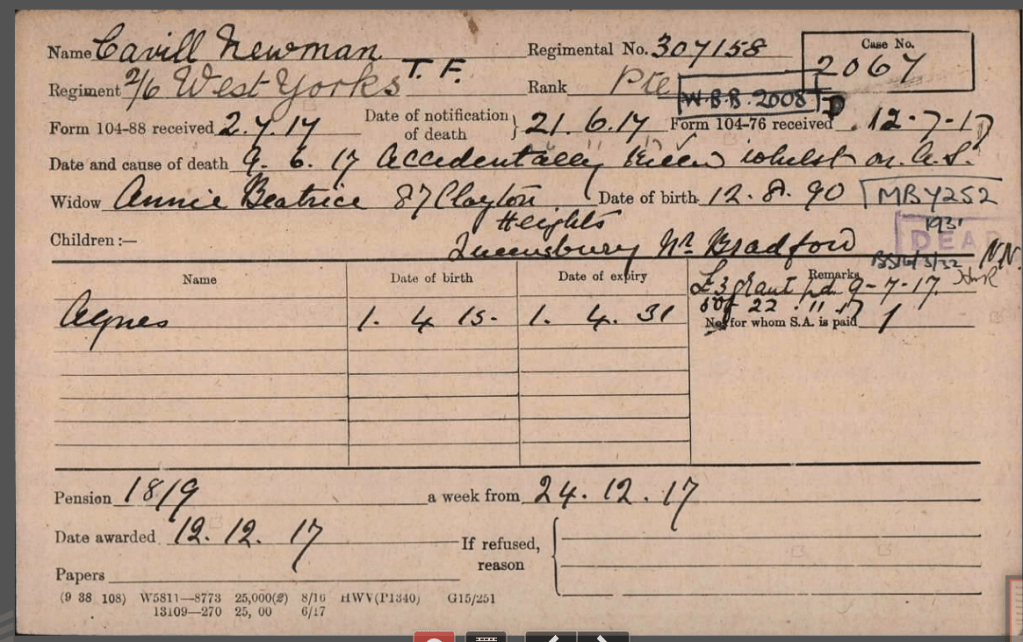 Name Cavill Newman Regimental No. 307158 Case No. 2067
Regiment 2/6 West Yorks T. F. Rank Pte W.B.B. 2008
Form 104-88 received 2.7.17 Date of notification of death } 21. 6.17 Form 104-76 received 12-7-17
Date and cause of death 9. 6. 17 Accidentally killed whilst on A.S.
Widow Annie Beatrice 87 Clayton Date of birth 12. 8. 90 MBY252
Heights 1931
Children :— Queensbury Nr. Bradford DEAD
N.N.
Name Date of birth Date of expiry Remarks
£3 grant pd. 9-7-17.
22 " 17
Agnes 1. 4 15. 1. 4. 31 No. for whom S.A. is paid 1
Pension 18/9 a week from 24. 12. 17
Date awarded 12. 12. 17 If refused, reason
Papers
(9 38 108) W5811—8773 25,000(2) 8/16 HWV(P1340) G15/251
13109—270 25, 00 6/17